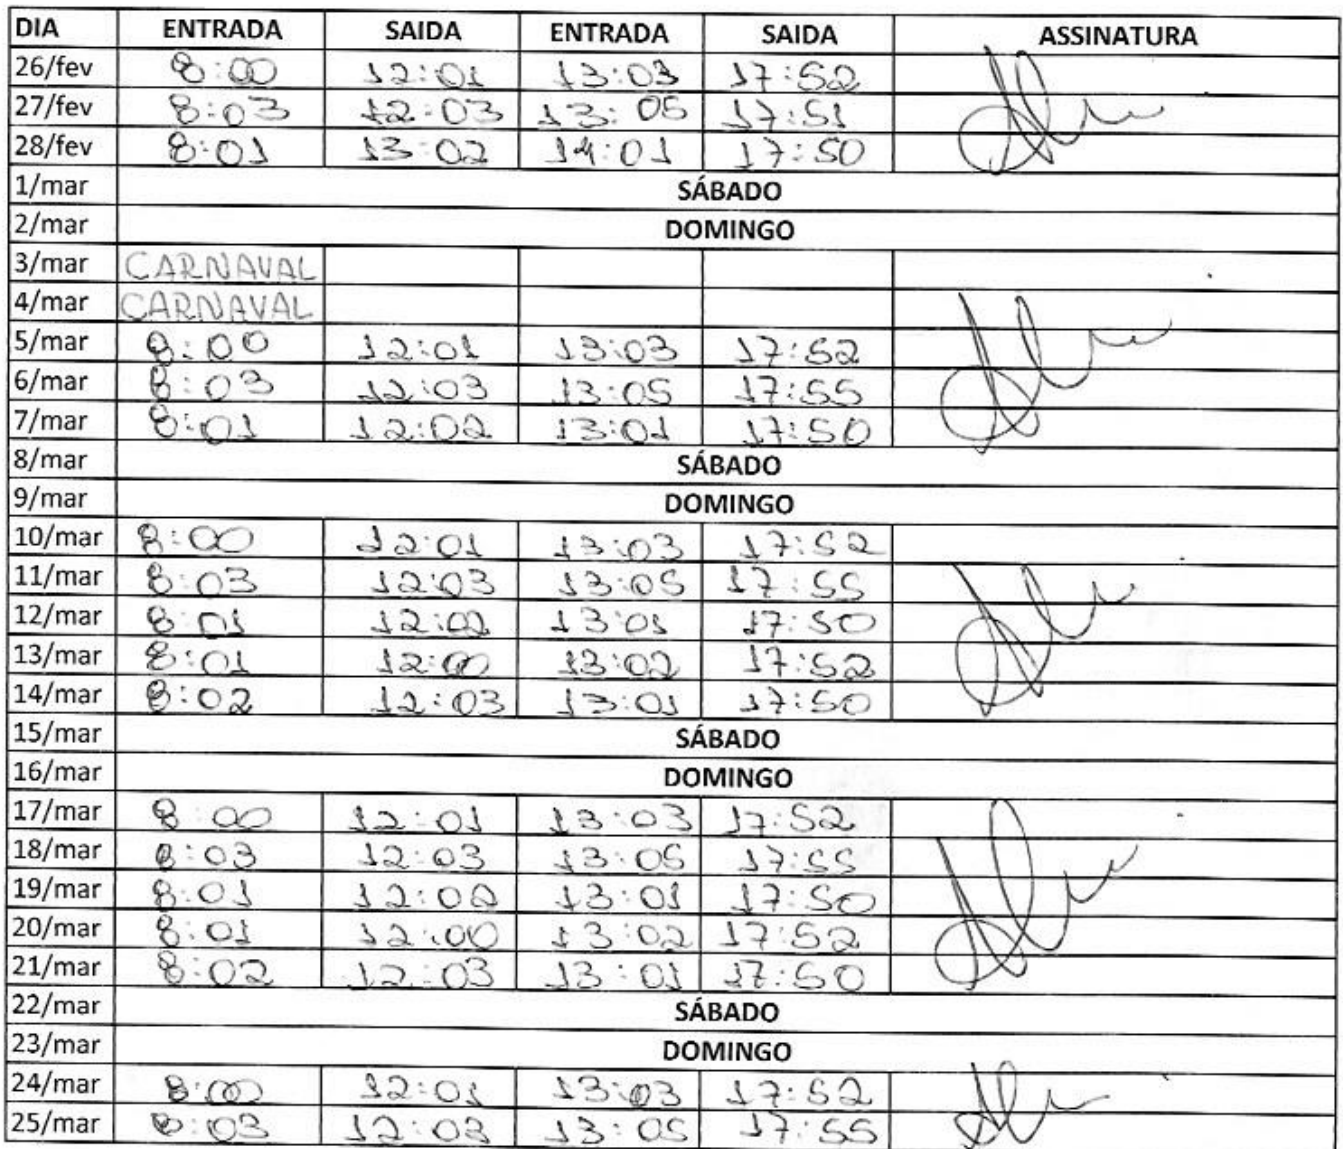 DIA ENTRADA SAIDA ENTRADA SAIDA ASSINATURA
26/fev 8:00 12:01 13:03 17:52
27/fev 8:03 12:03 13:05 17:51
28/fev 8:01 13:02 14:01 17:50
1/mar SÁBADO
2/mar DOMINGO
3/mar CARNAVAL
4/mar CARNAVAL
5/mar 8:00 12:01 13:03 17:52
6/mar 8:03 12:03 13:05 17:55
7/mar 8:01 12:02 13:01 17:50
8/mar SÁBADO
9/mar DOMINGO
10/mar 8:00 12:01 13:03 17:52
11/mar 8:03 12:03 13:05 17:55
12/mar 8:01 12:02 13:01 17:50
13/mar 8:01 12:00 13:02 17:52
14/mar 8:02 12:03 13:01 17:50
15/mar SÁBADO
16/mar DOMINGO
17/mar 8:00 12:01 13:03 17:52
18/mar 8:03 12:03 13:05 17:55
19/mar 8:01 12:02 13:01 17:50
20/mar 8:01 12:00 13:02 17:52
21/mar 8:02 12:03 13:01 17:50
22/mar SÁBADO
23/mar DOMINGO
24/mar 8:00 12:01 13:03 17:52
25/mar 8:03 12:03 13:05 17:55